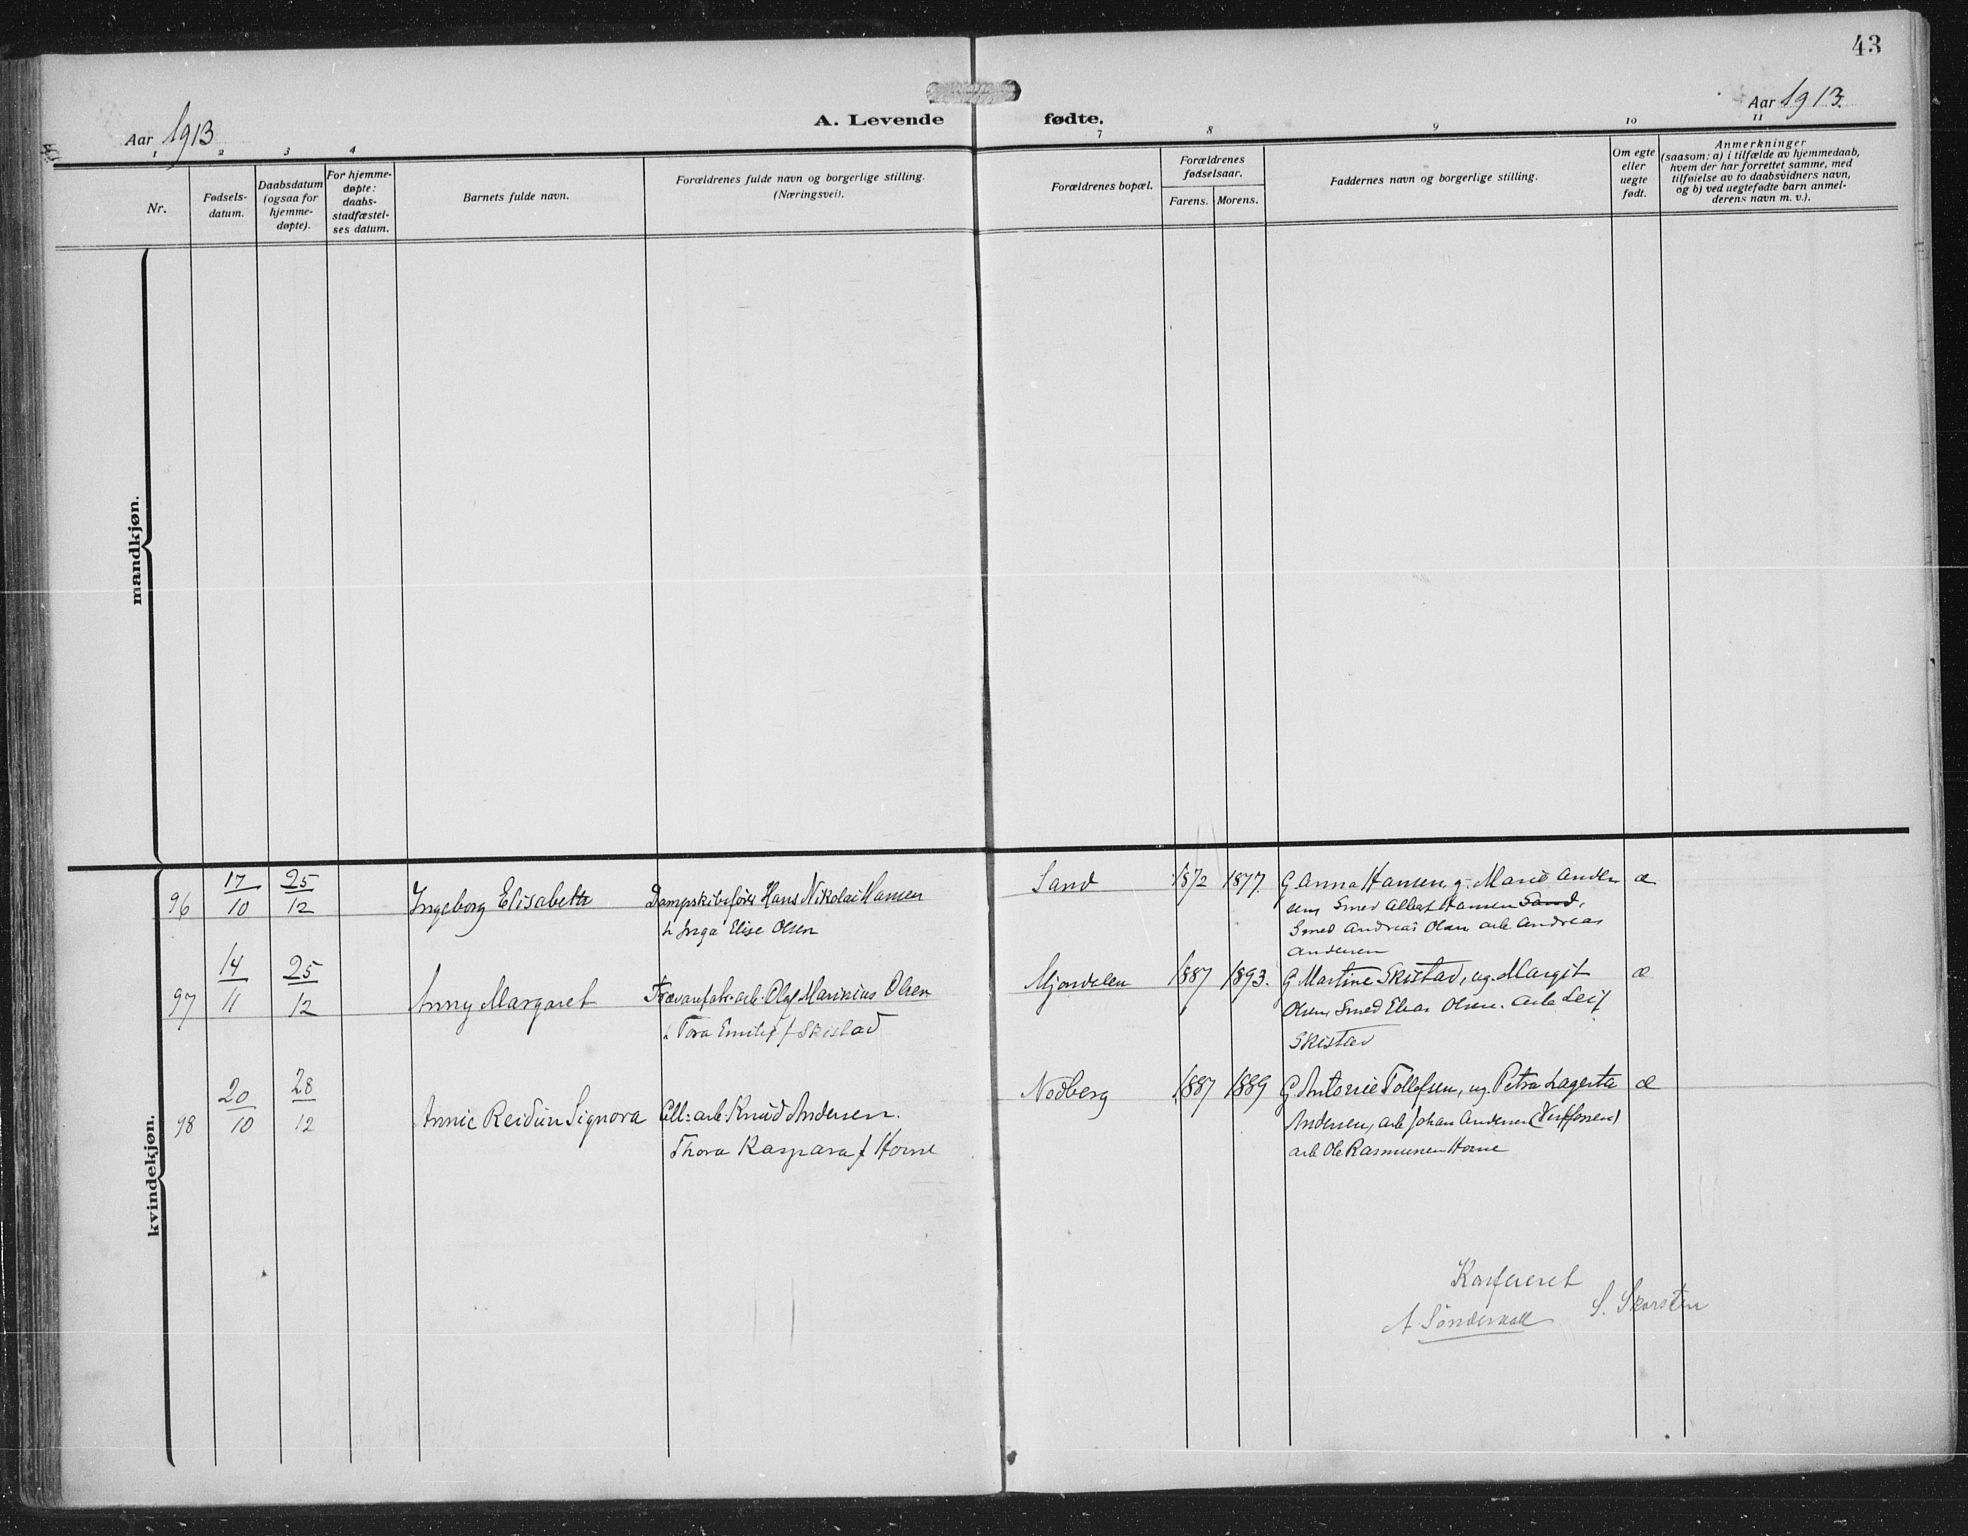 43
Aar 1913
A. Levende fødte.
Aar 1913.
1 2 3 4 7 8 9 10 11
Nr.
Fødsels-
datum.
Daabsdatum
(ogsaa for
hjemme-
døpte).
For hjemme-
døpte:
daabs-
stadfæstel-
ses datum.
Barnets fulde navn.
Forældrenes fulde navn og borgerlige stilling.
(Næringsvei).
Forældrenes bopæl.
Forældrenes
fødselsaar.
Farens. Morens.
Faddernes navn og borgerlige stilling.
Om egte
eller
uegte
født.
Anmerkninger
(saasom: a) i tilfælde av hjemmedaab,
hvem der har forrettet samme, med
tilføielse av to daabsvidners navn,
og b) ved uegtefødte barn anmel-
derens navn m. v.).
mandkjøn.
kvindekjøn.
96 17/10 25/12 Ingeborg Elisabeth Dampskibsfører Hans Nikolai Hansen Sand 1872 1877. G. Anna Hansen, g. Marie Ander
sen, Smed Albert Hansen Sand,
h Inga Elise Olsen
Smed Andreas Olsen, arb Andreas
Andersen
æ
97 14/11 25/12 Anny Margaret arb. Olaf Marinius Olsen Mjøndalen 1887 1893. G Martine Skistad, ug. Margit æ
Olsen, Smed Elias Olsen. arb Leif
Tora Emilie f Skistad
Skistad
98 20/10 28/12 Annie Reidun Signora Cell. arb. Knud Andersen. Nedberg 1887 1889 G Antonie Tollefsen, ug. Petra Lagerta æ
Andersen, arb Johan Andersen
Thora Kaspara f Horne
arb Ole Rasmussen Horne
Konfereret
A. S. Skorsten